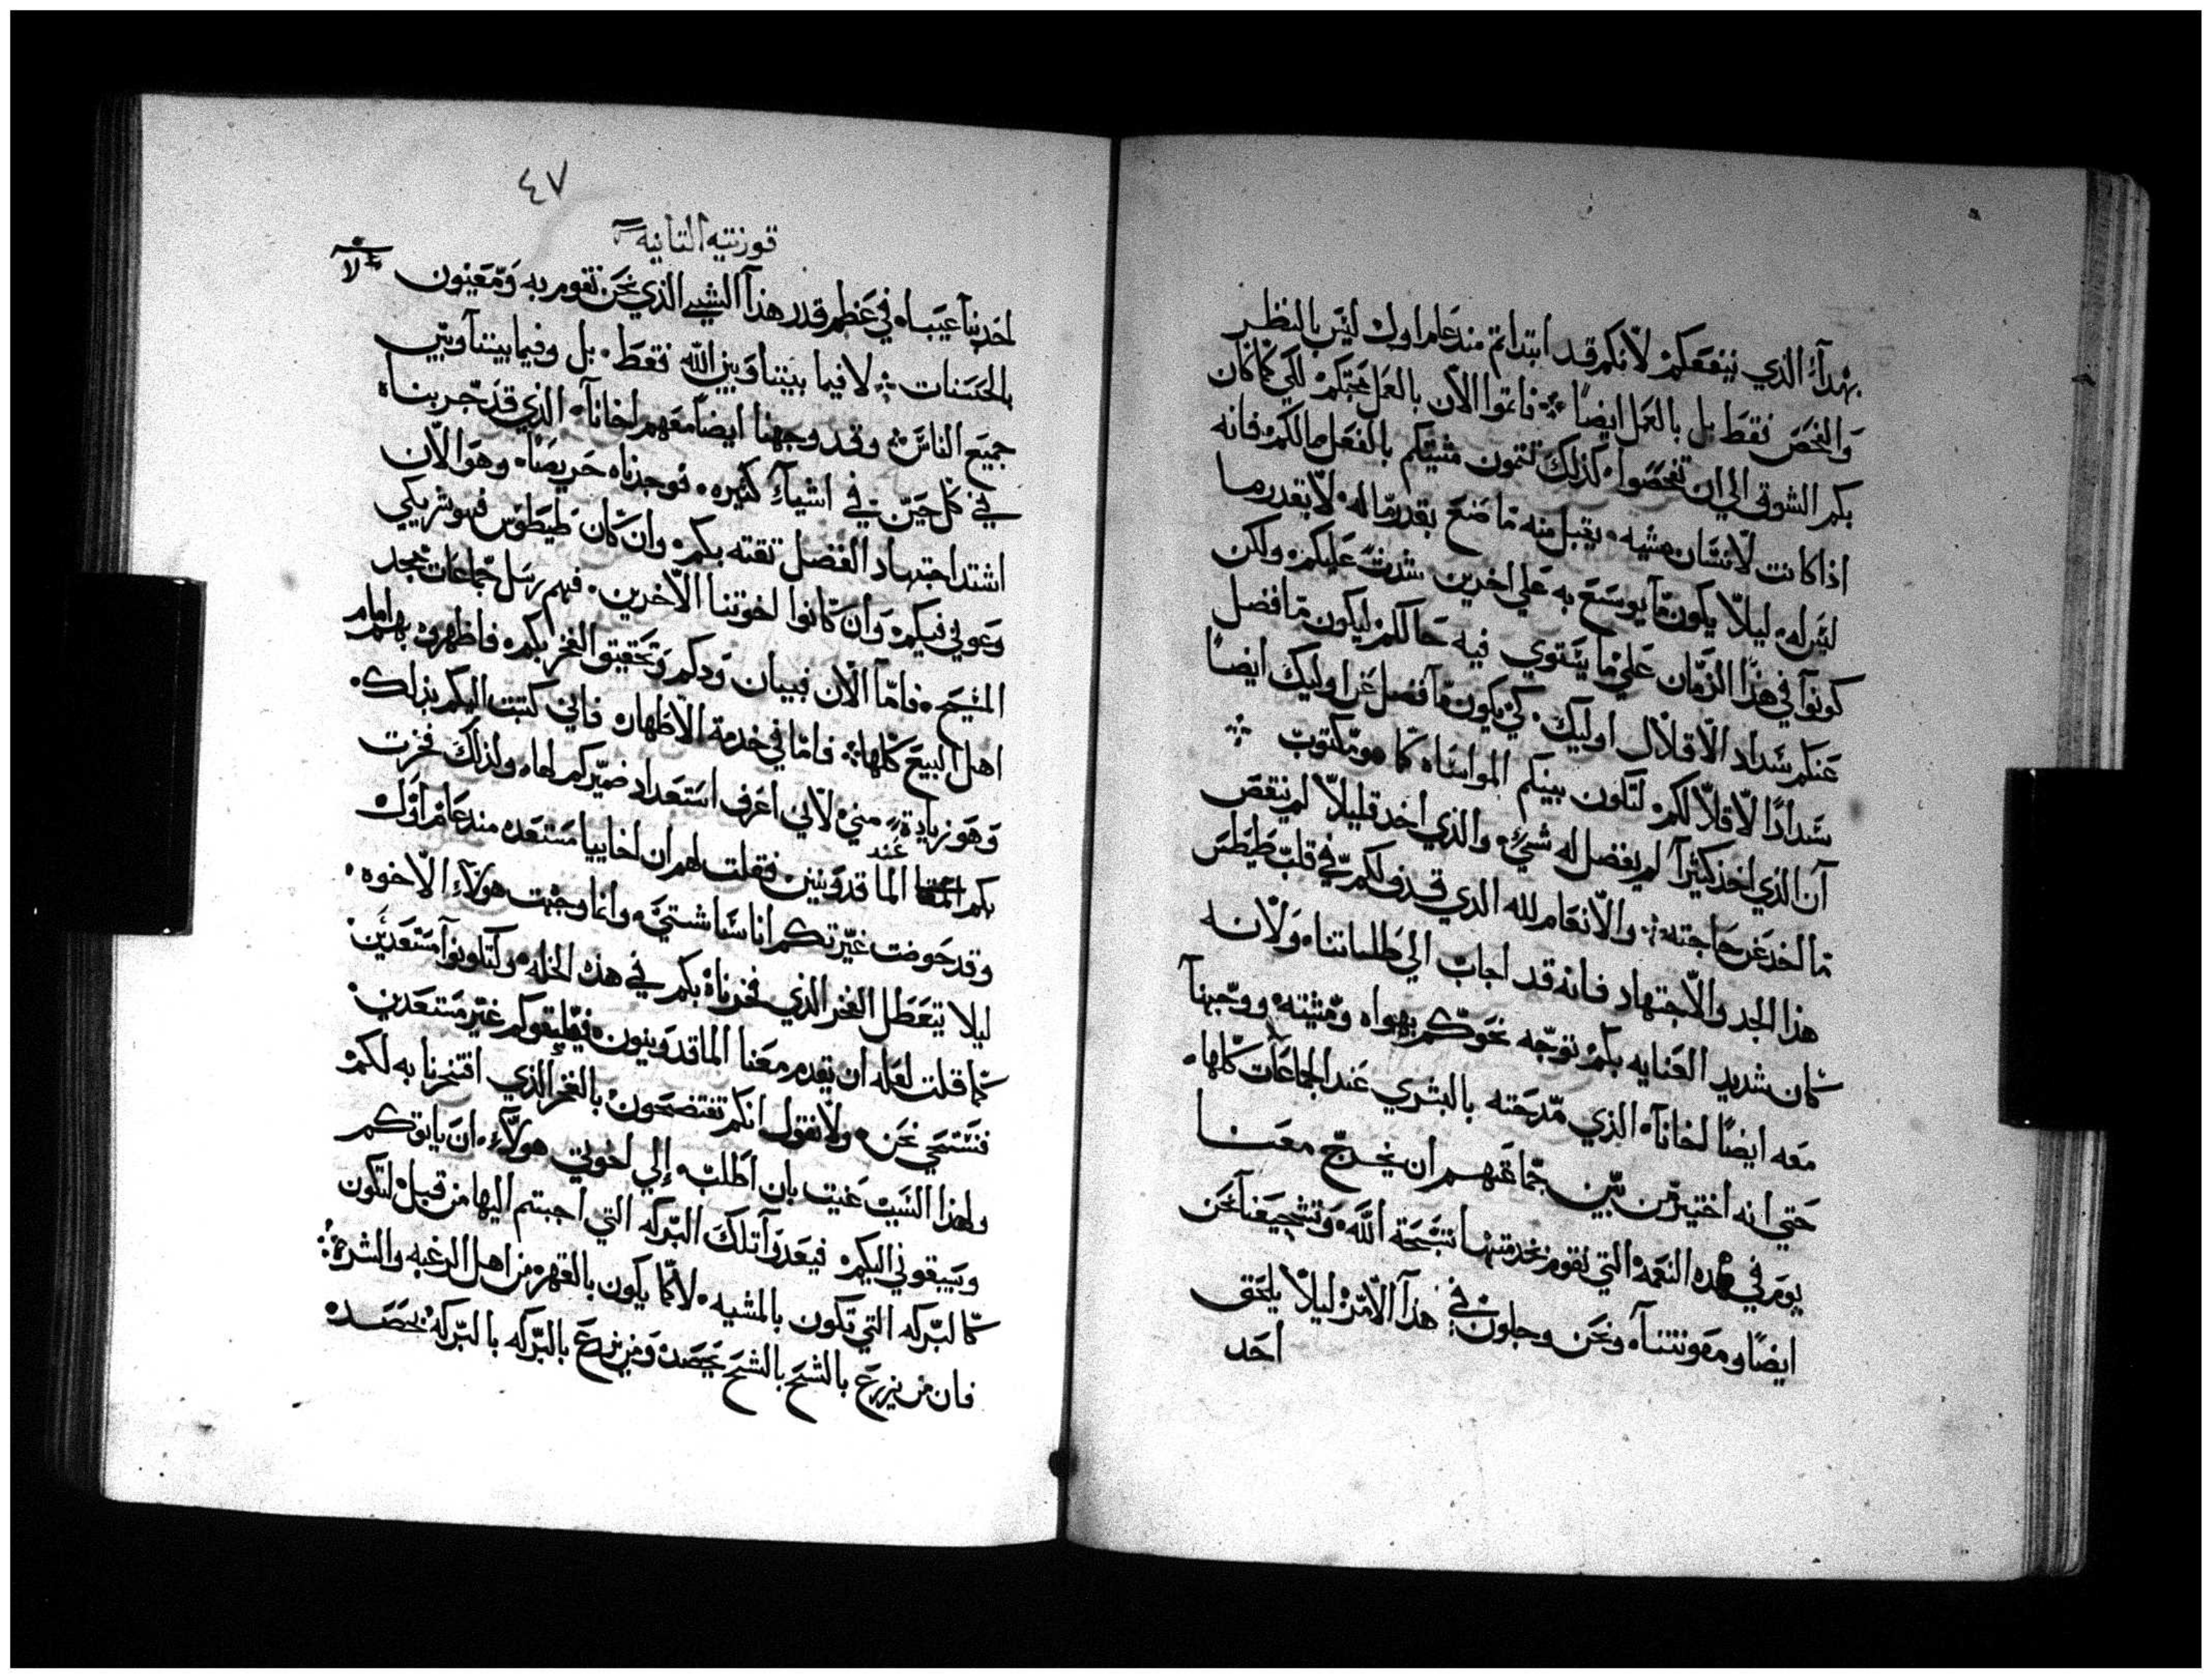 بهدآء الذي ينفعكم لانكم قد ابتداتم مند عام اول ليس بالنظر
والفحص فقط بل بالعمل ايضا فاتموا الان بالعمل محبتكم لكي كما كان
بكم الشوق الي ان تفحصوا كذلك تتمون مشيتكم بالفعل مما لكم فانه
اذا كانت لانسان مشيه يقبل منه ما صنع بقدر ما له لا بقدر ما
ليس له ليلا يكون ما يوسع به علي اخرين شدت عليكم ولكن
كونوا في هذا الزمان علي ما يستوي فيه حالكم ليكون ما فضل
عنكم سداد الاقلال اوليك كي يكون ما فضل عن اوليك ايضا
سدادا لاقلالكم لتكون بينكم المواساه كما هو مكتوب
ان الذي اخذ كثيرا لم يفضل له شي والذي اخد قليلا لم ينقص
ما اخد عن حاجته والانعام لله الدي قذف لكم في قلب طيطس
هذا الجد والاجتهاد فانه قد اجاب الي طلباتنا ولانه
كان شديد العنايه بكم توجه نحوكم بهواه ومشيته ووجهنا
معه ايضا اخانا الذي مدحته بالبشري عند الجماعات كلها
حتي انه اختير من بين جماعتهم ان يخرج معنا
يومر في هده النعمه التي نقوم بخدمتها تسبحة الله وتشجيعنا نحن
ايضا ومعونتنا ونحن وجلون في هذا الامر ليلا يلحق
احد
٤٧
قورنتيه التانيه
احد بنا عيبا في عظم قدر هذا الشي الذي نحن نقوم به ومعنيون
بالحسنات لا فيما بيننا وبين الله فقط بل وفيما بيننا وبين
جميع الناس وقد وجهنا ايضا معهم اخانا الذي قد جربناه
في كل حين في اشياء كثيره فوجدناه حريصا وهو الان
اشتد اجتهاد الفضل تقته بكم وان كان طيطوس فهو شريكي
وعوني فيكم وان كانوا اخوتنا الاخرين فهم رسل جماعات مجد
المسيح فاما الان فبيان ودكم وتحقيق الفخر بكم فاظهروه بهم امام
اهل البيع كلها فاما في خدمة الاطهار فاني كتبت اليكم بذلك
وهو زيادة مني لاني اعرف استعداد ضميركم لها ولذلك فخرت
بكم عند الماقدونيين فقلت لهم ان اخاييا مستعده مند عام اول
وقد حرضت غيرتكم اناسا شتي وانما وجهت هولاء الاخوه
ليلا يتعطل الفخر الذي فخرناه بكم في هذه الخله ولتكونوا مستعدين
كما قلت لعله ان يقدم معنا الماقدونيون فيلقوكم غير مستعدين
فنستحي نحن ولا نقول انكم تفتضحون بالفخر الذي افتخرنا به لكم
ولهذا السبب عنيت بان اطلب الي اخوتي هولاء ان ياتوكم
ويسبقوني اليكم فيعدوا تلك البركه التي اجبتم اليها من قبل لتكون
كالبركه التي تكون بالمشيه لا كما يكون بالقهر من اهل الرغبه والشره
فان من يزرع بالشح بالشح يحصد ومن يزرع بالبركه بالبركه يحصد